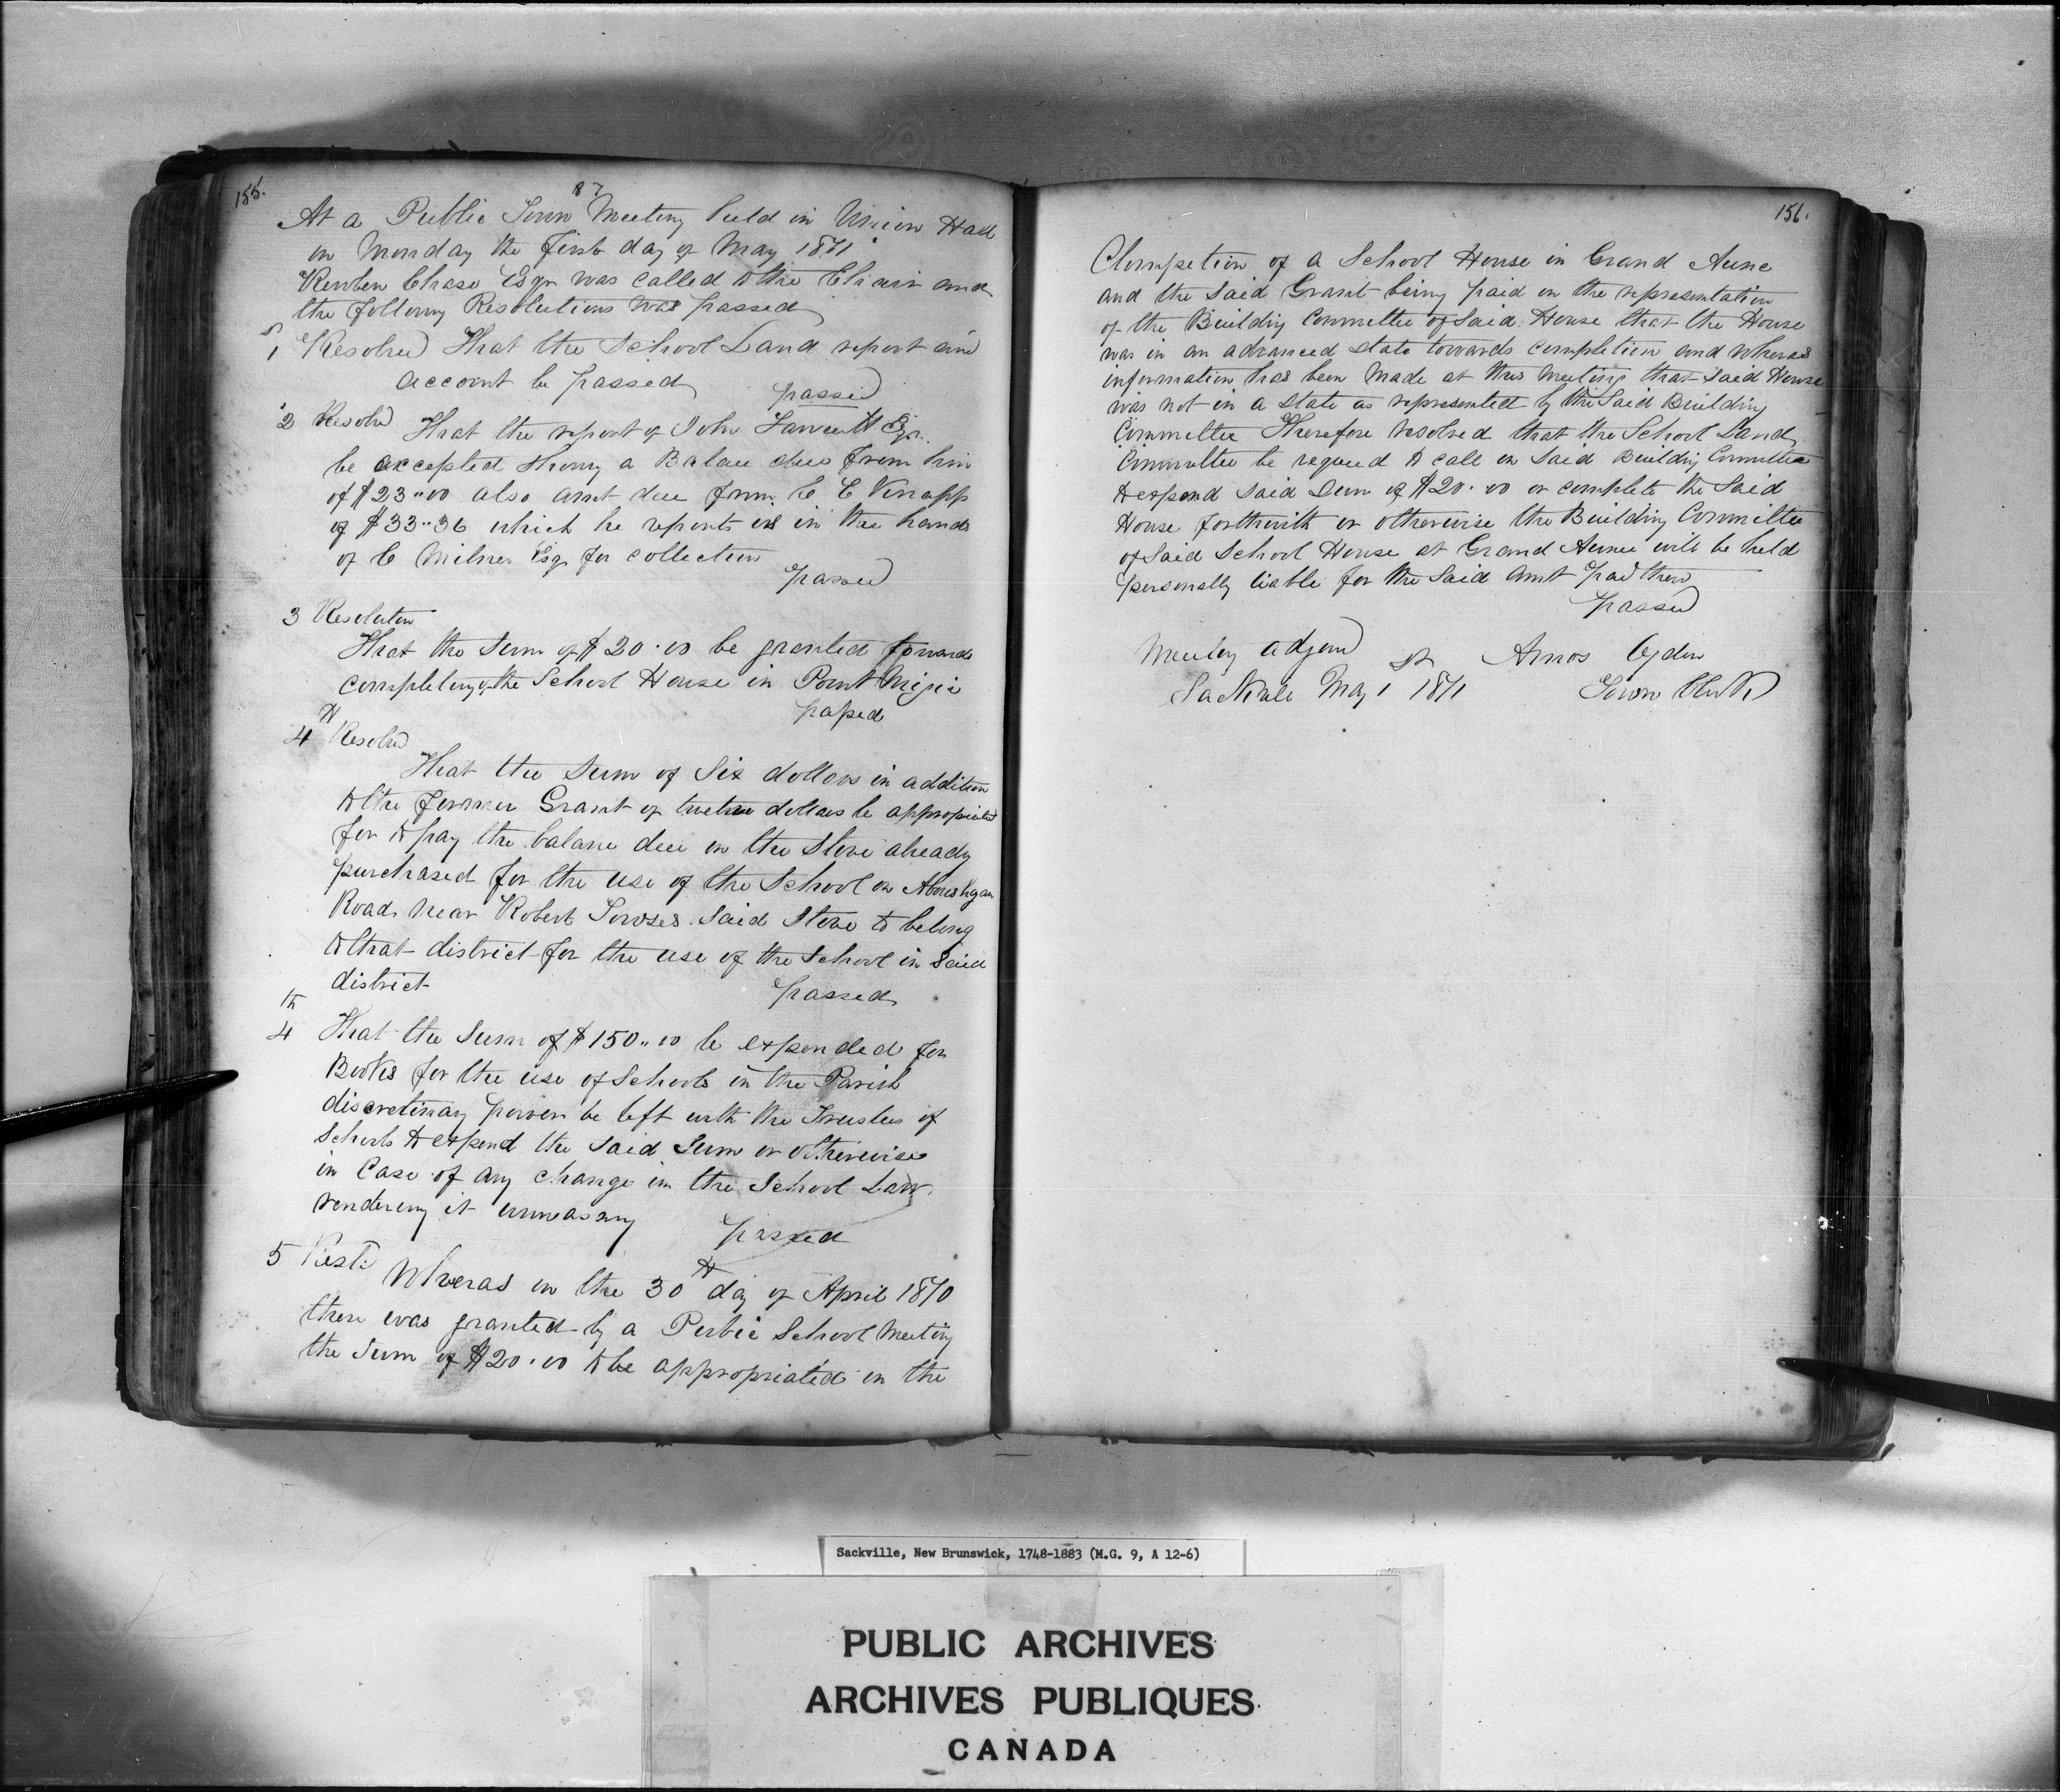 155.
87
At a Public Town Meeting held in Union Hall
on Monday the first day of May 1871
Reuben Chase Esqr was called to the Chair and
the following Resolutions was passed
1 Resolved That the School Land report and
account be passed
passed
2 Resolvd That the report of John Fawcett Esqr.
be accepted shewing a Balance due from him
of $23"00 also amt due from C E Knapp
of $33"36 which he reports is in the hands
of C Milner Esqr for collection
passed
3 Resolution
That the Sum of $20.00 be granted towards
completing of the School House in Point Migic
passed
4th Resolved
That the Sum of Six dollars in addition
to the former Grant of twelve dollars be appropriated
for to pay the balance due on the Stove already
purchased for the use of the School on Aboushagan
Road near Robert Towses Said Stove to belong
to that district for the use of the School in Said
district
passed
4th That the Sum of $150"00 be expended for
Books for the use of Schools in the Parish
discretinary power be left with the Trustees of
Schools to expend the said Sum or otherwise
in Case of any change in the School Law
rendering it unnecessary
passed
5 Rest: Wheras on the 30th day of April 1870
there was granted by a Public School Meeting
the Sum of $20.00 to be appropriated in the
156.
Completion of a School House in Grand Aunce
and the Said Grant being paid on the representation
of the Building Committee of Said House that the House
was in an advanced state towards completion and wheras
information has been made at this Meeting that Said House
was not in a state as represented by the Said Building
Committee Therefore resolved that the School Land
Committee be requied to call on Said Building Committee
to expend Said Sum of $20.00 or complete the Said
House forthwith or otherwise the Building Committee
of Said School House at Grand Aunce will be held
personally liable for the Said Amt paid them
passed
Meeting adjond
Amos Ogden
Sackville May 1st 1871
Town Clerk
Sackville, New Brunswick, 1748-1883 (M.G. 9, A 12-6)
PUBLIC ARCHIVES
ARCHIVES PUBLIQUES
CANADA